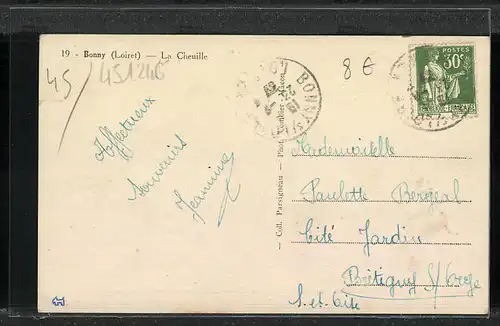 19 - Bonny (Loiret) — La Cheuille
45
451246
8 €
POSTES
30c
BONNY
Affectueux
Souvenirs
Jeannine
Coll. Parsigneau — Phot.
Mademoiselle
Paulette
Cité Jardin
Brétigny s/Orge
S. et Oise